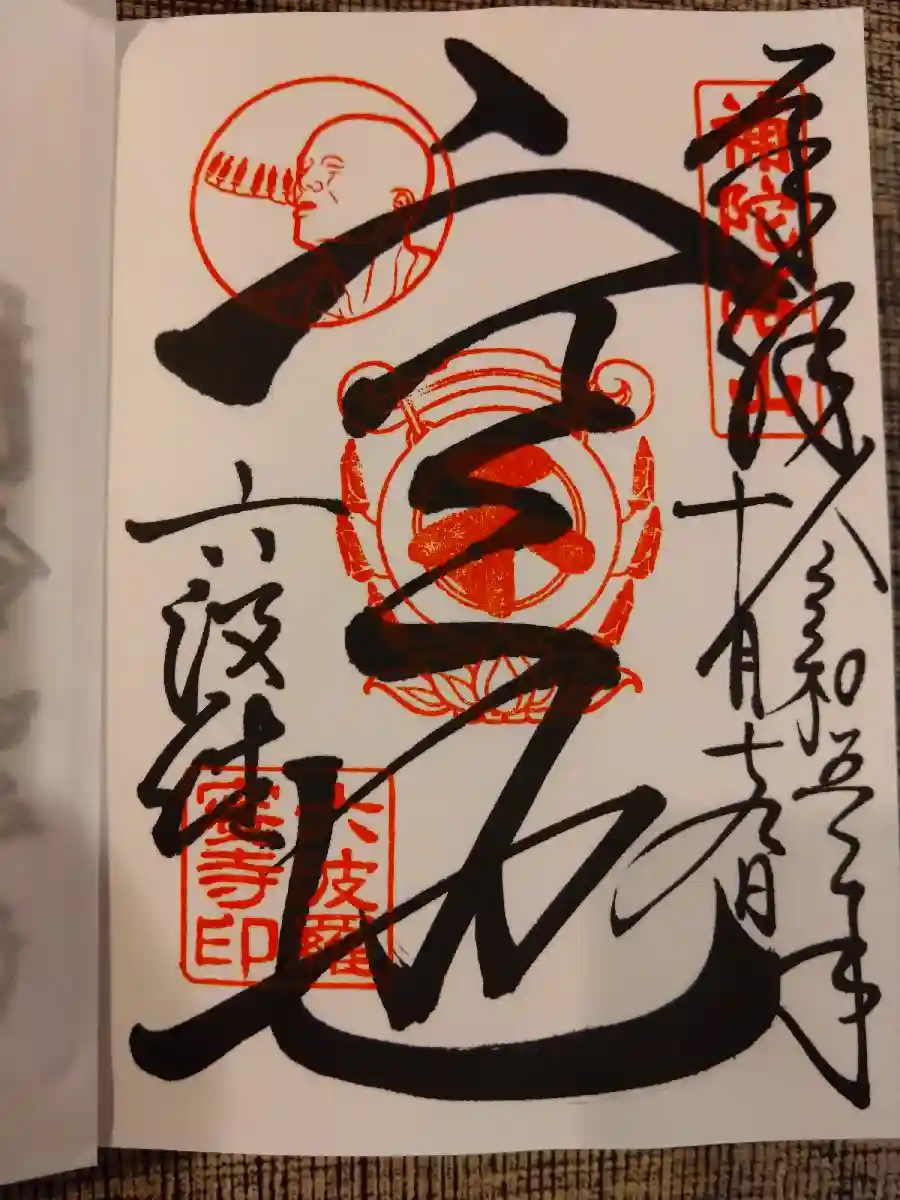 奉拝
令和五年
十月十九日
補陀洛山
空也
六波羅
六波羅
蜜寺印